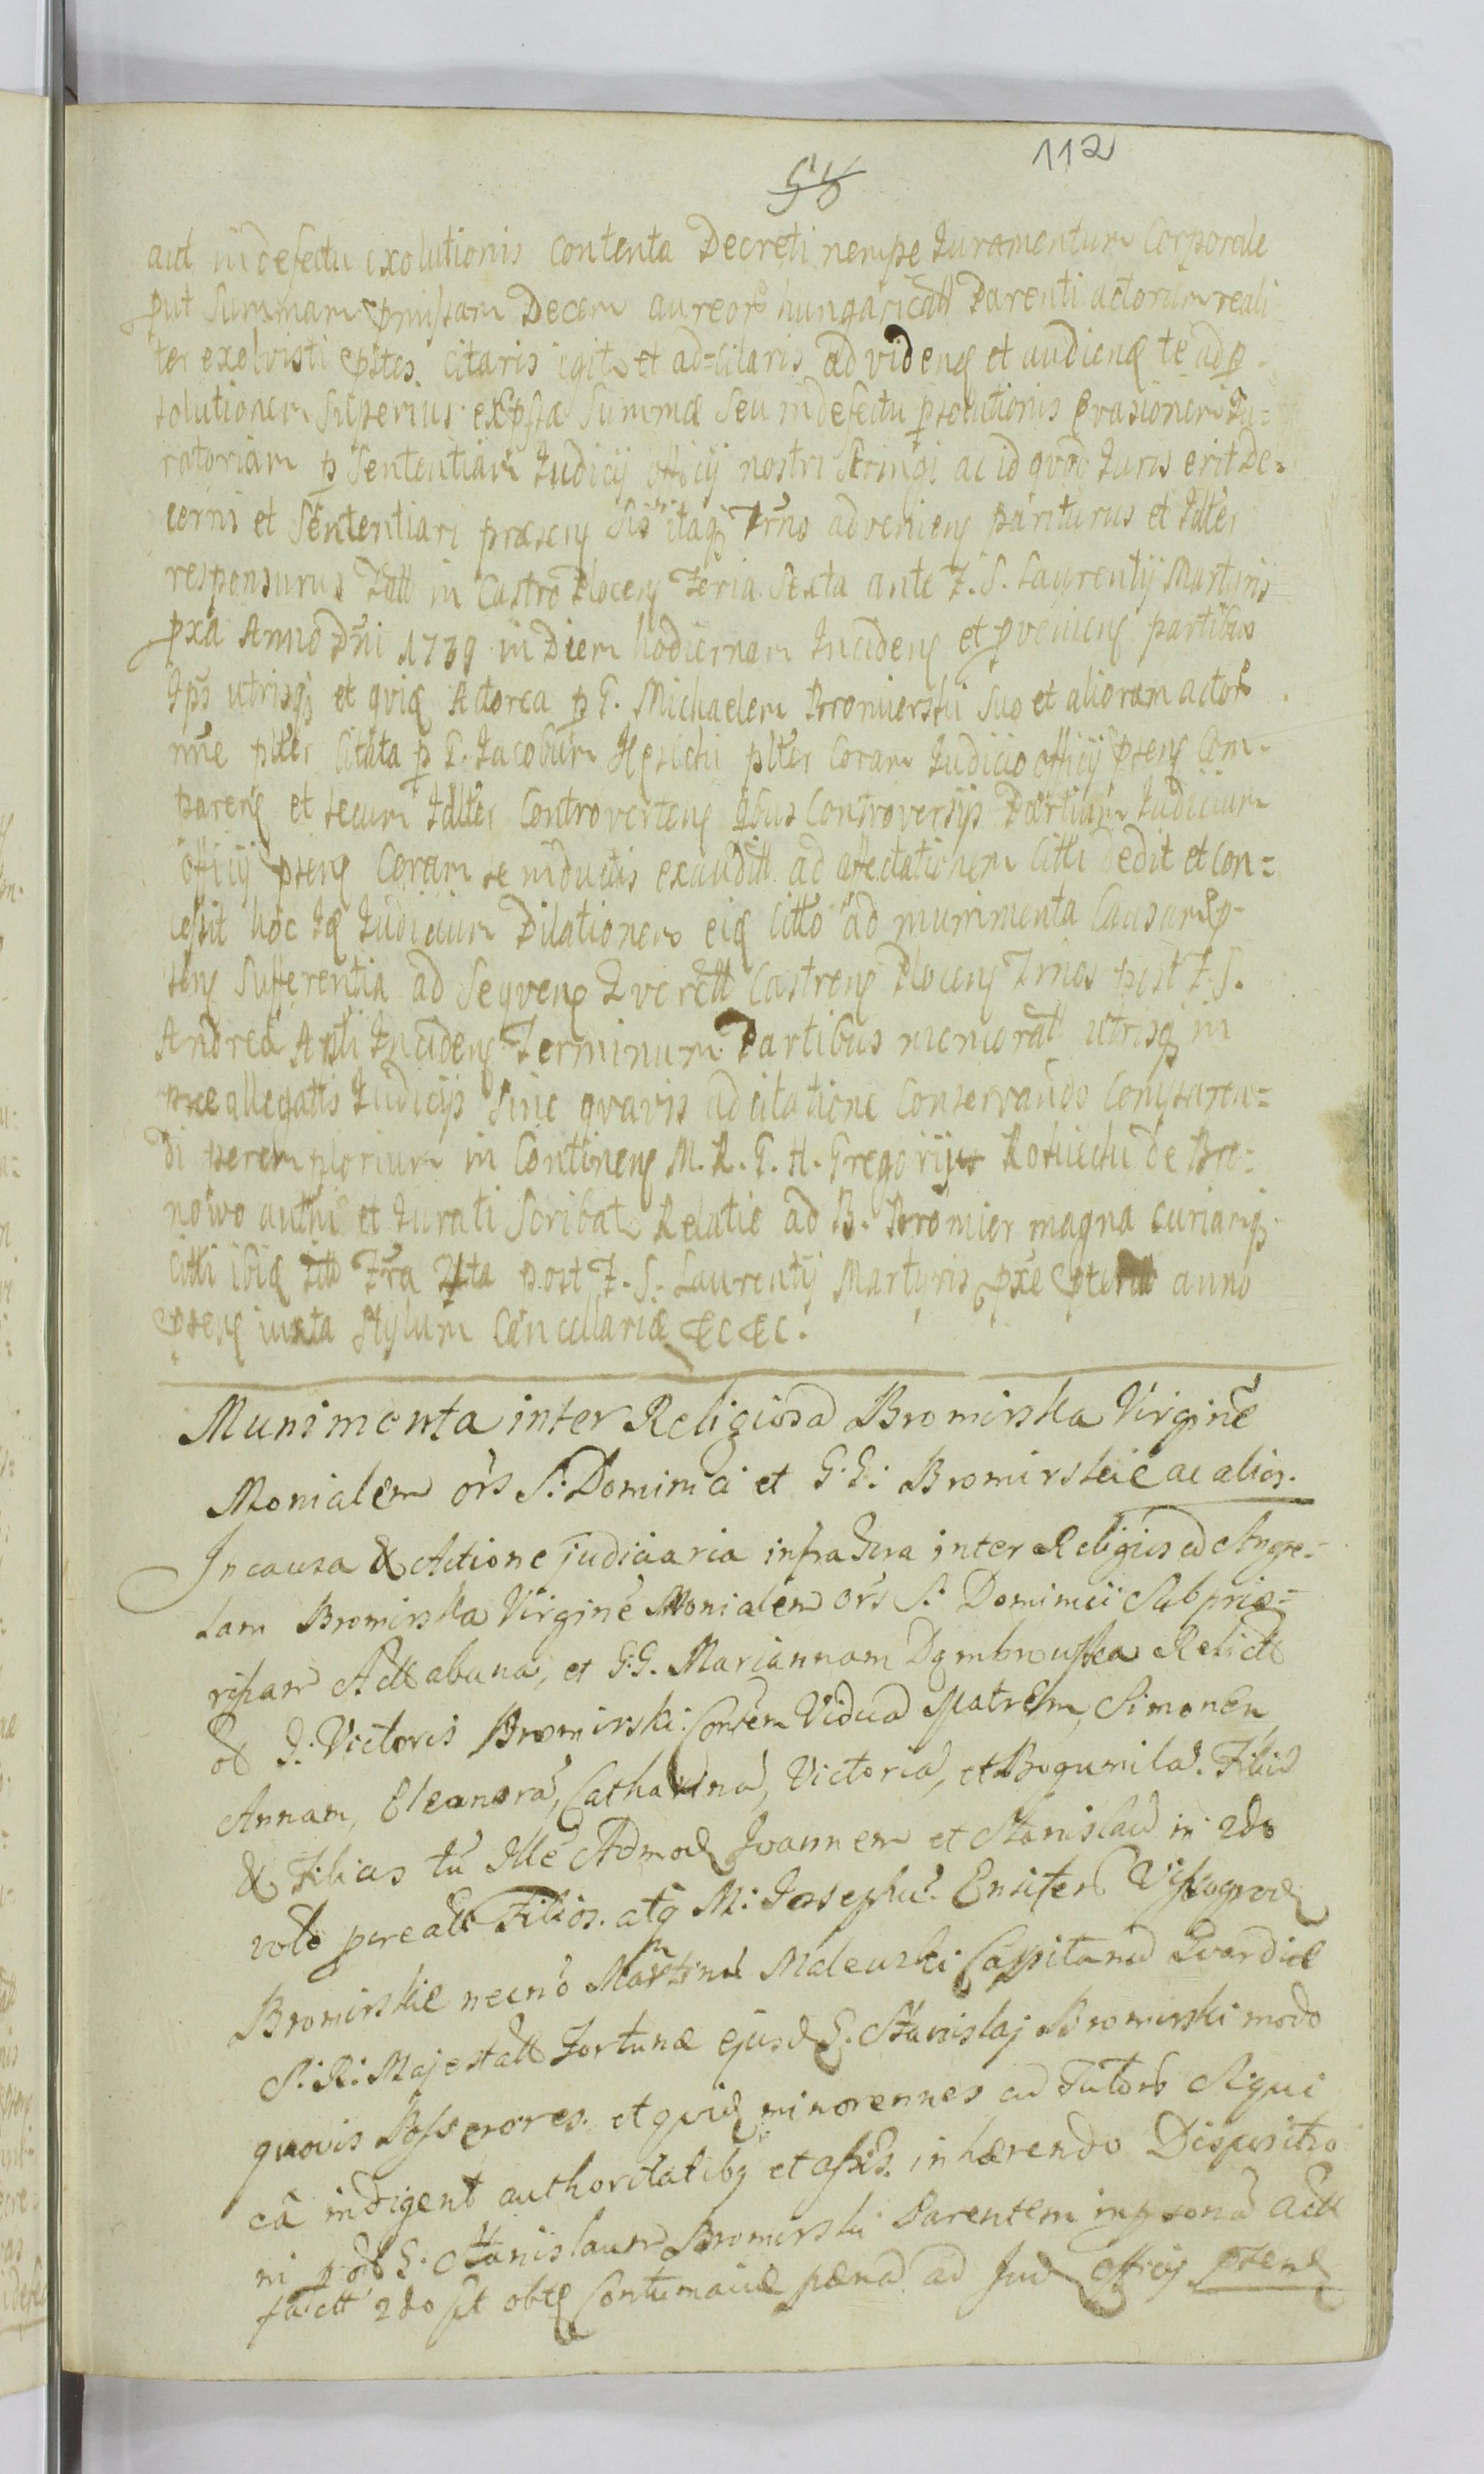 112
58
aut in defectu exolutionis contenta Decreti nempe Juramentum Corporale
put Summam pmissam Decem aureor hungaricall Parenti actorum reali
ter exolvisti pstes. citaris igit et ad-citaris ad videnq et audienq te ad p-
solutionem Superius expssæ Summæ Seu in defectu psolutionis Evasionem Ju=
ratoriam p Sententiam Judicij officij nostri Stringi ac id qvod Juris erit De=
cerni et Sententiari præsenq Sis itaq Trno advenienq pariturus et Jdlter
responsurus Datt in Castro Plocenq Feria Sexta ante F. S. Laurentij Martyris
pxa Anno Dni 1739 in Diem hodiernam Incidenq et pvenienq partibus
Ips utrisq et qviq Actorea p G. Michaelem Bromierski Suo et aliorum actor
nne plter Citata p G. Jacobum plter Coram Judicio officij psenq Com-
parenq et secum Jdlter Controvertenq qbus Controversijs Partium Judicium
officij psenq Coram se inductis exauditt ad affectationem Citti dedit et con=
cessit hoc Jq Judicium Dilationem eiq Citto ad munimenta Causæ p-
senq Sufferentia ad Seqvenq Qverell Castrenq Plocenq Trnos post F. S.
Andreæ Apli Incidenq Terminum Partibus memorat utrisq in
præallegattis Judicijs Sine qvavis adcitatione Conservando Comparen=
di peremptorium in Continenq M. R. G. H. Gregorijus de Bro=
nowo authi et Jurati Scribat Relatio ad B. Bromier magna curiamq
citti ibiq Fra 4ta post F. S. Laurentij Martyris pxe pterit anno
psenq iuxta Stylum Cancellariæ &c &c.
Munimenta inter Religiosã Bromirska Virginẽ
Monialem ors S: Dominici et G.G: Bromirskie ac alios.
In causa & Actione judiciaria infraScra inter Religiosã Agne=
tam Bromirska Virginẽ Monialem ors S: Dominici Subprio=
rissam, et G.G. Mariannam Dąmbrowska Relict
G: Victoris Bromirski Consortem Viduã Matrem, Simonem,
Annam, Eleonorã, Catharinã, Victoriã, et Bogumilã. Filiã
& Filias tũ Illẽ Admod Joannem et Stanislaũ in 2do
voto Filios. atq M: Josephũ. Ensiferũ Vissogrod
Bromirskie necno Martinũ Malewski Capitaneũ Gvardiæ
S: R: Majestatt Fortunæ ejusd G. Stanislaj Bromirski modo
quovis Possessores. et qvid minorennes cũ Tutorib Siqui
eã indigent authoritatibq et assis. inhærendo Dispositio
ni p G. Stanislaum Bromirski Parentem in psona actt
factt 2do obtq Contumaciæ pænã ad Jud Officij psens